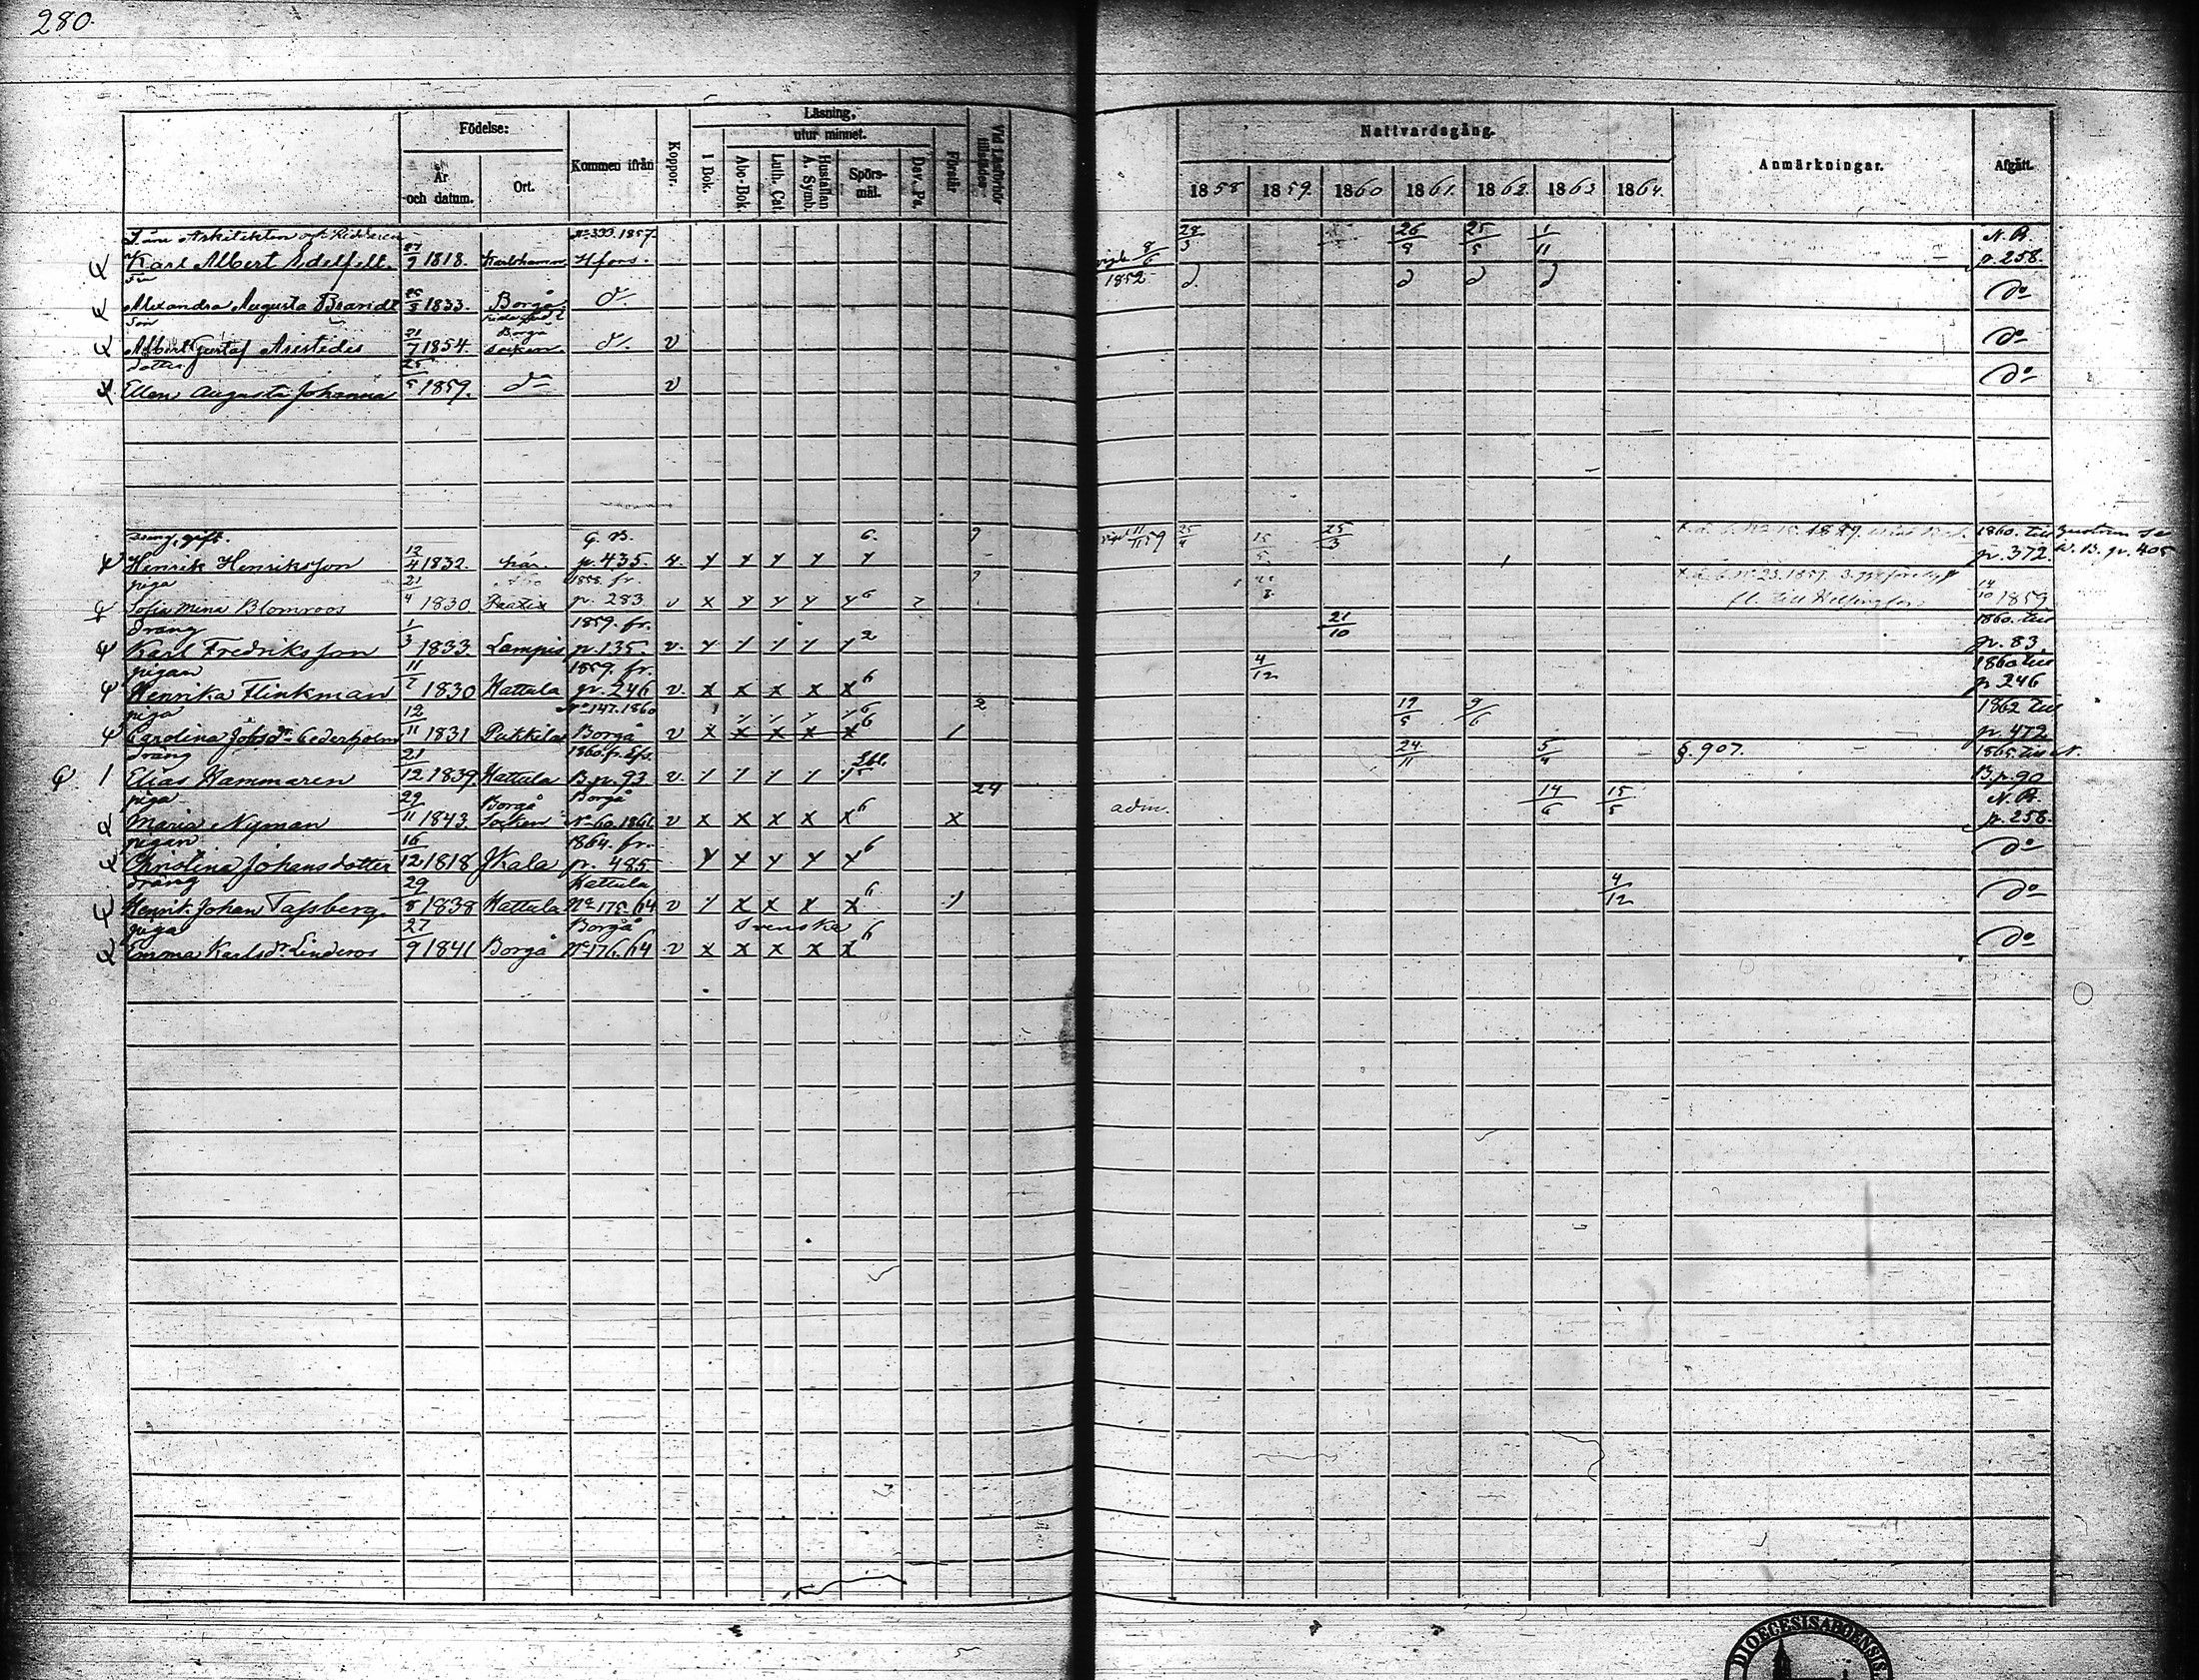 280.
Födelse:
Läsning,
utur minnet.
År och datum.
Ort.
Kommen ifrån
Koppor.
I Bok.
Abc-Bok.
Luth. Cat.
Hustaflan A. Symb.
Spörs-mål.
Dav. Ps.
Förstår
Vid Läsförhör tillstädes
Nattvardsgång.
1858 1859. 1860 1861. 1862. 1863 1864.
Anmärkningar.
Afgått.
Läns Arkitekten och Riddaren No 333. 1857. 28/3 26/9 25/5 1/11 N. B.
Karl Albert Edelfelt. 1818. Karlshamn Hfors. 8/6 1852 p. 258.
Alexandra Augusta Brandt 1833. Borgå do d. d d d do
Son
Albert Gustaf Aristides 21/7 1854. Borgå socken do v do
dotter
Ellen Augusta Johanna 25/5 1859. do v do
dräng, gift. G. B. 6. 11/11 59 25/4 15/5 25/3 1860. till
Henrik Henriksson 12/4 1832. här. p. 435. v. p. 372. p. 405
piga 1858. fr. 14/10 1859
Sofia Mina Blomroos 21/4 1830 p. 283 v x y y y y 6 fl. till Helsingfors
dräng 1859. fr. 21/10 1860. till
Karl Fredriksson 1/3 1833. Lampis p. 135. v. 2 p. 83.
pigan 1859. fr. 4/12 1860 till
Henrika Flinkman 11/2 1830 Hattula p. 246 v. x x x x x 6 p. 246
piga No 147. 1860 6 2 19/5 9/6 1862 till
Carolina Johsdr Cederholm 12/11 1831 Pukkila Borgå v x x x x x 6 1 p. 472
dräng 1860. fr. 24/11 5/4 §. 907. 1865. till N.
1 Elias Hammaren 21/12 1839. Hattula B. p. 93 v. B. p. 90
piga Borgå 24 adm. 14/6 15/5 N. B.
Maria Nyman 29/11 1843. Borgå Socken No 60. 1861 v x x x x x 6 x p. 258.
pigan 1864. fr.
Christina Johansdotter 16/12 1818 Jkala p. 485. y y y y y 6 do
dräng Hattula 4/12
Henrik Johan Tassberg 29/8 1838 Hattula No 175. 64 v x x x x 6 do
piga Borgå Svenska
Emma Karlsdr Linderos 27/9 1841 Borgå No 176. 64 v x x x x x 6 do
DIOECESIS ABOENSIS.